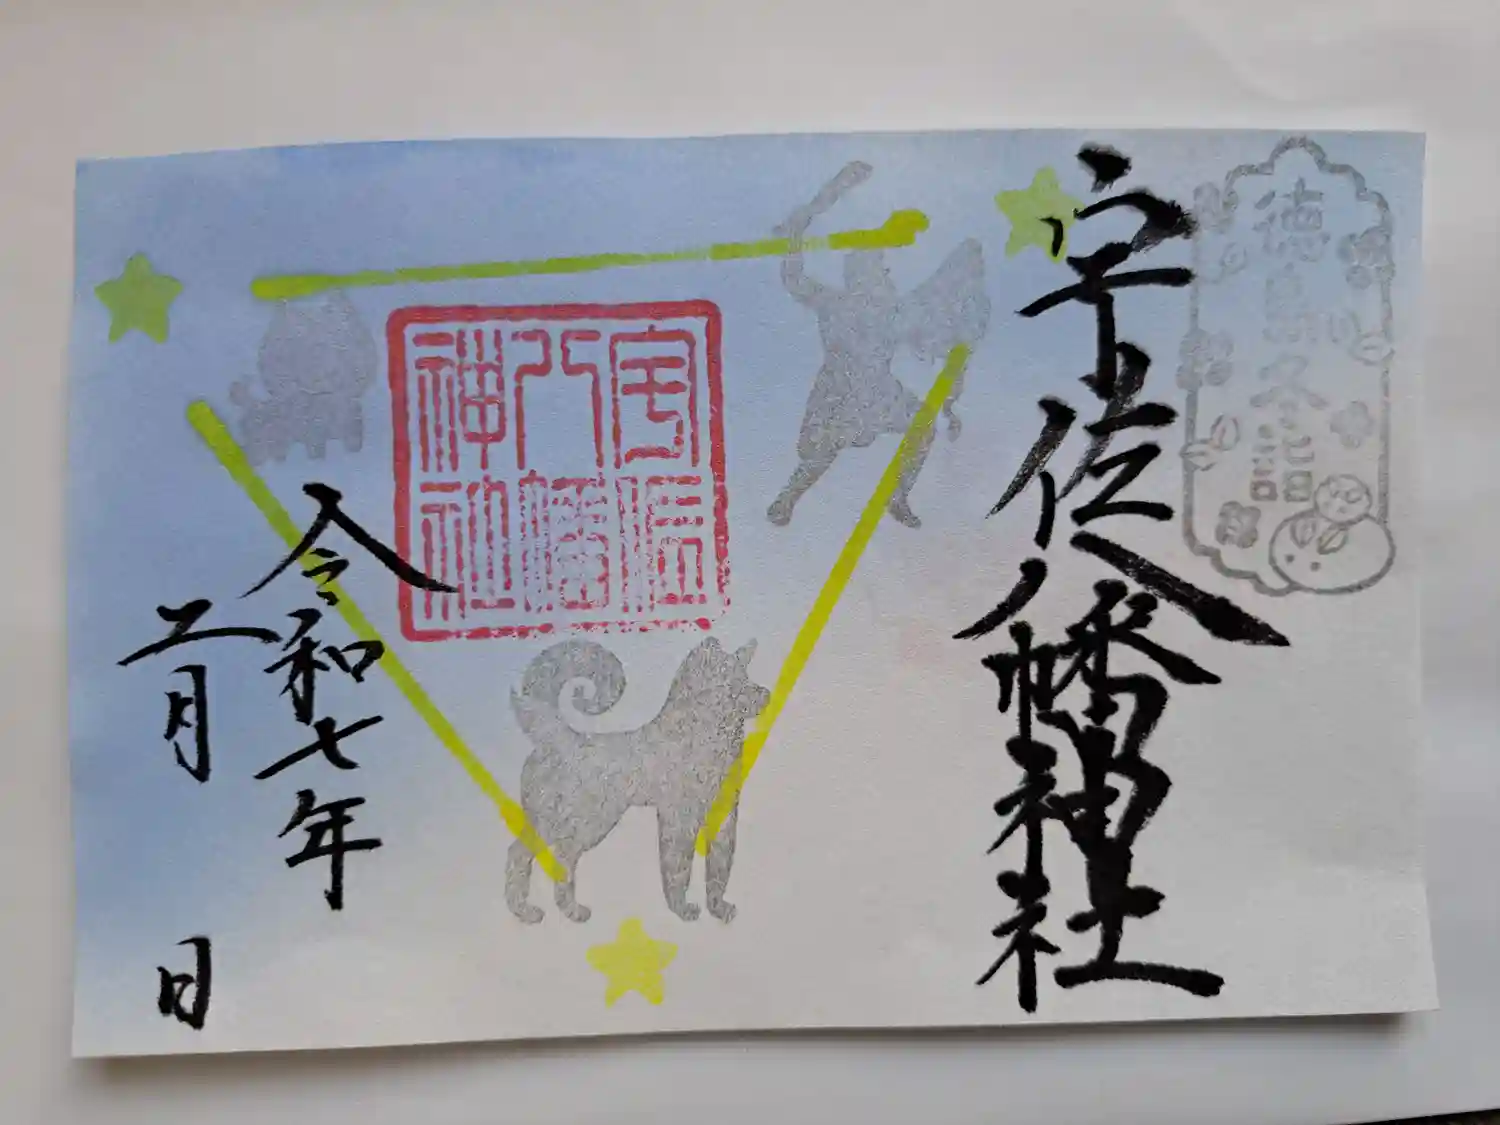 徳島冬詣
宇佐八幡神社
宇佐
八幡
神社
令和七年
二月 日